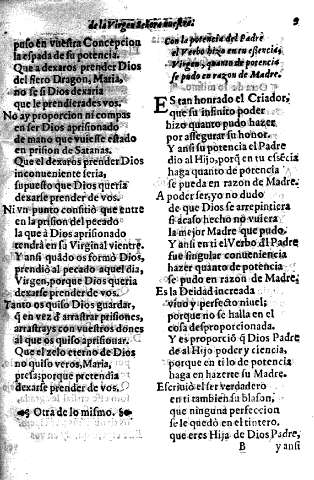 de la Virgen señora nuestra. 9
puso en vuestra Concepcion
la espada de su potencia.
Que a dexaros prender Dios
del fiero Dragon, Maria,
no se si Dios dexaria
que le prendierades vos.
No ay proporcion ni compas
en ser Dios aprisionado
de mano que vuiesse estado
en prision de Satanas.
Que el dexaros prender Dios
inconueniente seria,
supuesto que Dios queria
dexarse prender de vos.
Ni vn punto consitio que entre
en la prision del pecado
la que à Dios aprisionado
tendrà en su Virginal vientre.
Y ansi quãdo os formò Dios,
prendiò al pecado aquel dia,
Virgen, porque Dios queria
dexarse prender de vos.
Tanto os quiso Dios guardar,
q̃ en vez d̃ arrastrar prisiones,
arrastrays con vuestros dones
al que os quiso aprisionar.
Que el zelo eterno de Dios
no quiso veros, Maria,
presa; porque pretendia
dexarse prender de vos.
Otra de lo mismo.
Con la potencia del Padre
el Verbo hizo en su essencia,
Virgen, quanto de potencia
se pudo en razon de Madre.
Es tan honrado el Criador,
que su infinito poder
hizo quanto pudo hazer
por assegurar su honor.
Y ansi su potencia el Padre
dio al Hijo, porq̃ en tu essẽcia
haga quanto de potencia
se pueda en razon de Madre.
A poder ser, yo no dudo
de que Dios se arrepintiera
si acaso hecho no vuiera
la mejor Madre que pudo.
Y ansi en ti el Verbo d̃l Padre
fue singular conueniencia
hazer quanto de potencia
se pudo en razon de Madre.
Es la Deidad increada
viuo y perfecto niuel;
porque no se halla en el
cosa desproporcionada.
Y es proporciõ q̃ Dios Padre
de al Hijo poder y ciencia,
porque en ti lo de potencia
haga en hazerte su Madre.
Escriuiò el ser verdadero
en ti tambien su blason,
que ninguna perfeccion
se le quedò en el tintero.
que eres Hija de Dios Padre,
B y ansi